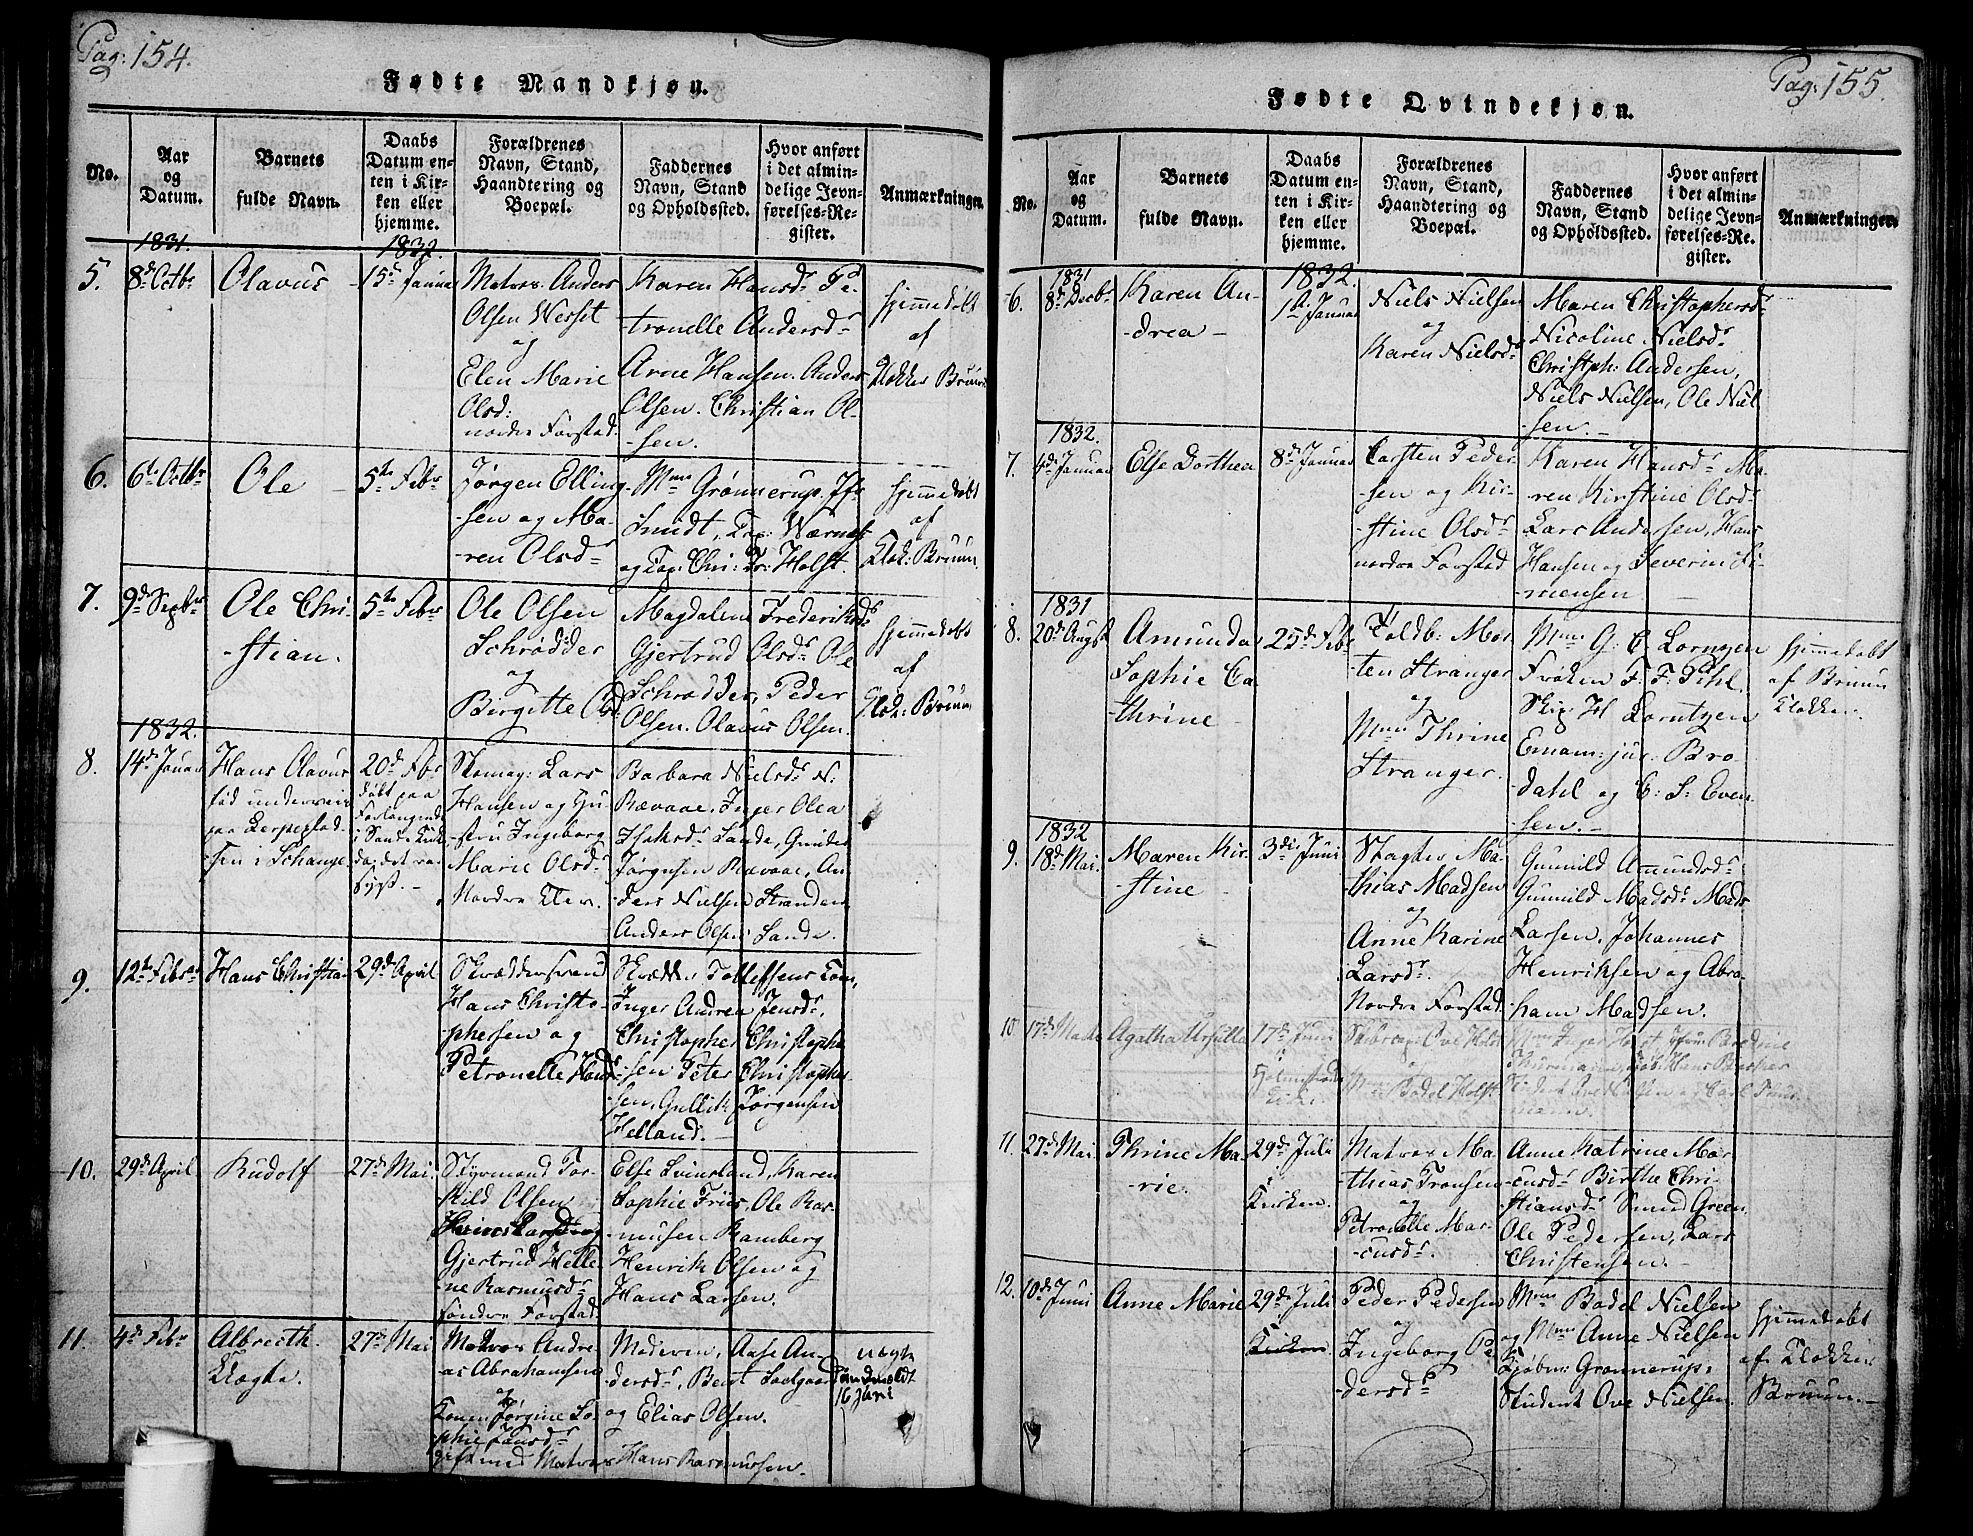 Pag: 154.
Fødte Mandkjøn.
No.
Aar
og
Datum.
Barnets
fulde Navn.
Daabs
Datum en-
ten i Kir-
ken eller
hjemme.
Forældrenes
Navn, Stand,
Haandtering og
Boepæl.
Faddernes
Navn, Stand
og Opholdssted.
Hvor anført
i det almin-
delige Jevn-
førelses-Re-
gister.
Anmærkninger.
1831.
1832.
5.
8d Octbr
Olavus
15d Januar
Matros Anders
Olsen Wesset
og
Elen Marie
Olsd:
nordre Forstad.
Karen Hansdr Pe-
-tronelle Andersdr
Arne Hansen. Anders
Olsen. Christian Ol-
-sen.
hjemmedøbt
af
Klokker Bruun
6.
6te Octbr
Ole
5te Febr
Jørgen Elling-
-sen og Ma-
-ren Olsdr
Mme Grønnerup, Jfr
Smidt,
og Cap: Chr: Fr: Holst.
hjemmedøbt
af
Klok: Bruun.
7.
9d Septbr
Ole Chri-
-stian.
5te Febr
Ole Olsen
Schrødder
og
Birgitte Olsdr
Magdalene Frederiksdr
Gjertrud Olsdr Ole
Schrødder, Peder
Olsen. Olavus Olsen.
hjemmedøbt
af
Klok: Bruun
1832.
8.
14d Januar
Hans Olavus
fød underveis
paa
i Schange
20d Febr
døbt paa
Forlangende
i Sande Kirke
da det var
sygt.
Skomag: Lars
Hansen og Hu-
-stru Ingeborg
Marie Olsdr
Nordre Elev.
Barbara Nielsdr N:
Revaae, Inger Olea
Isaksdr Sande, Gunder
Jørgensen Revaae, An-
-ders Nielsen Stranden
Anders Olsen Sande.
9.
12te Febr
Hans Christian
29d April
Skræddersvend
Hans Christo-
-phersen og
Petronelle Hans-
Skrædder Tollefsens Kone,
Inger Andrea Jensdr,
Christopher Christopher-
-sen Peter Christopher-
-sen, Gullik Jørgensen
Helland.
10.
29d April
Rudolf
27d Mai
Styrmand Tor-
-kild Olsen
Gjertrud Helle-
-ne Rasmusdr
søndre Forstad.
Else Svinesland, Karen
Sophie Friis, Ole Ras-
-musen Ramberg
Henrik Olsen og
Hans Larsen.
11.
4d Febr
Albrecth
Klogka.
27d Mai
Matros Andre-
-as Abrahamsen
og
Konen Jørgine So-
-phie Hansdr
gift med Matros
Moderen, Aase An-
-dersdr, Bent Saelgaard
og Elias Olsen.
Hans Rasmussen.
uægte
16 Juni
Pag: 155.
Fødte Qvindekjøn.
No.
Aar
og
Datum.
Barnets
fulde Navn.
Daabs
Datum en-
ten i Kir-
ken eller
hjemme.
Forældrenes
Navn, Stand,
Haandtering og
Boepæl.
Faddernes
Navn, Stand
og Opholdssted.
Hvor anført
i det almin-
delige Jevn-
førelses-Re-
gister.
Anmærkninger.
1831
1832.
6.
8d Decbr
Karen An-
-drea
1d Januar
Niels Nielsen
og
Karen Nielsdr
Maren Christophersdr
Nicoline Nielsdr
Christph: Andersen,
Niels Nielsen, Ole Niel-
-sen.
1832.
7.
4d Januar
Else Dorthea
8d Januar
Carsten Peder-
-sen og Kir-
-stine Olsdr
nordre Forstad
Karen Hansdr Ma-
-ren Kirstine Olsdr
Lars Andersen, Hans
Hansen og Severin Si-
-mensen
1831
8.
20d Augst
Amunda
Sophie Ca-
-thrine
25d Febr
Toldb: Mor-
-ten Stranger
og
Mme Thrine
Stranger.
Mme G: C. Lorntzen
Frøken F. F. Pihl.
Skip. H Lorntzen
Emam: jur. Bro-
dahl og C: S: Even-
-sen.
hjemmedøbt
af Bruun
Klokker.
1832
9.
18d Mai
Maren Kir-
-stine
3die Juni
Slagter Ma-
-thias Madsen
og
Anne Karine
Larsdr.
Nordre Forstad
Gunnild Amundsdr
Gunnild Madsdr Mads
Larsen, Johannes
Henriksen og Abra-
ham Madsen.
10
17d Marts
Agatha Ursilla
17d Juni
Holmestrands
Kirke
Skibscap: Ove Holst
og
Mme Bodel Holst
11.
27d Mai
Thrine Ma-
-rie.
29d Juli
Kirken.
Matros Ma-
-thias Tronsen
og
Petronelle Mar-
-cusdr.
Anne Katrine Mar-
-cusdr Birthe Chri-
-stiansdr Smud Green
Ole Pedersen, Lars
Christensen.
12.
10d Juni
Anne Marie
29d Juli
Kirken
Peder Pedersen
og
Ingeborg Pe-
-dersdr
Mme Bodel Nielsen
og Mme Anne Nielsen
Kjøbm: Grønnerup,
Student Ove Nielsen.
hjemmedøbt
af Klokker
Bruun.